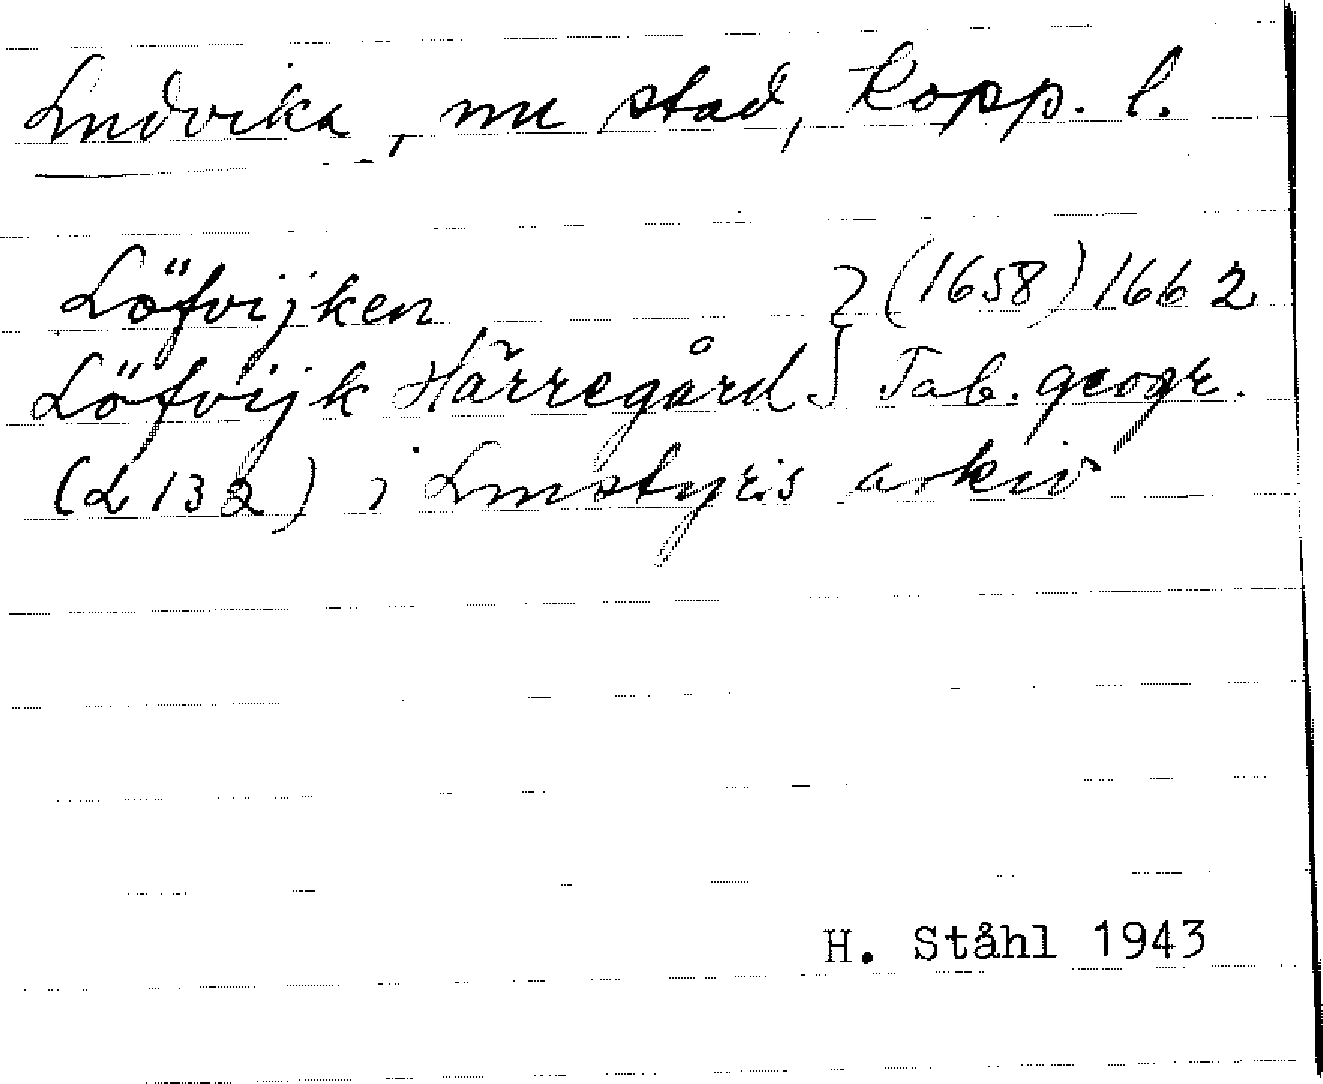 Ludvika, nu stad, Kopp. l.
Löfvijken } (1658) 1662
Löfvijk Härregård } Tab. geogr.
(L 132) i Lmstyr:s arkiv
H. Ståhl 1943